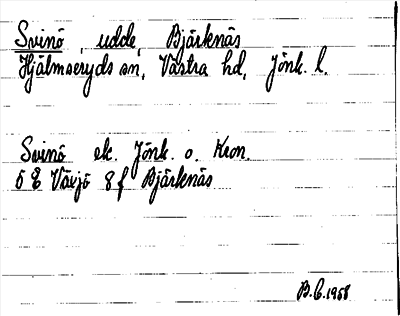 Svinö, udde, Bjärknäs
Hjälmseryds sn, Västra hd, Jönk. l.
Svinö ek. Jönk. o. Kron.
5 E Växjö 8 f Bjärknäs
B.C. 1958